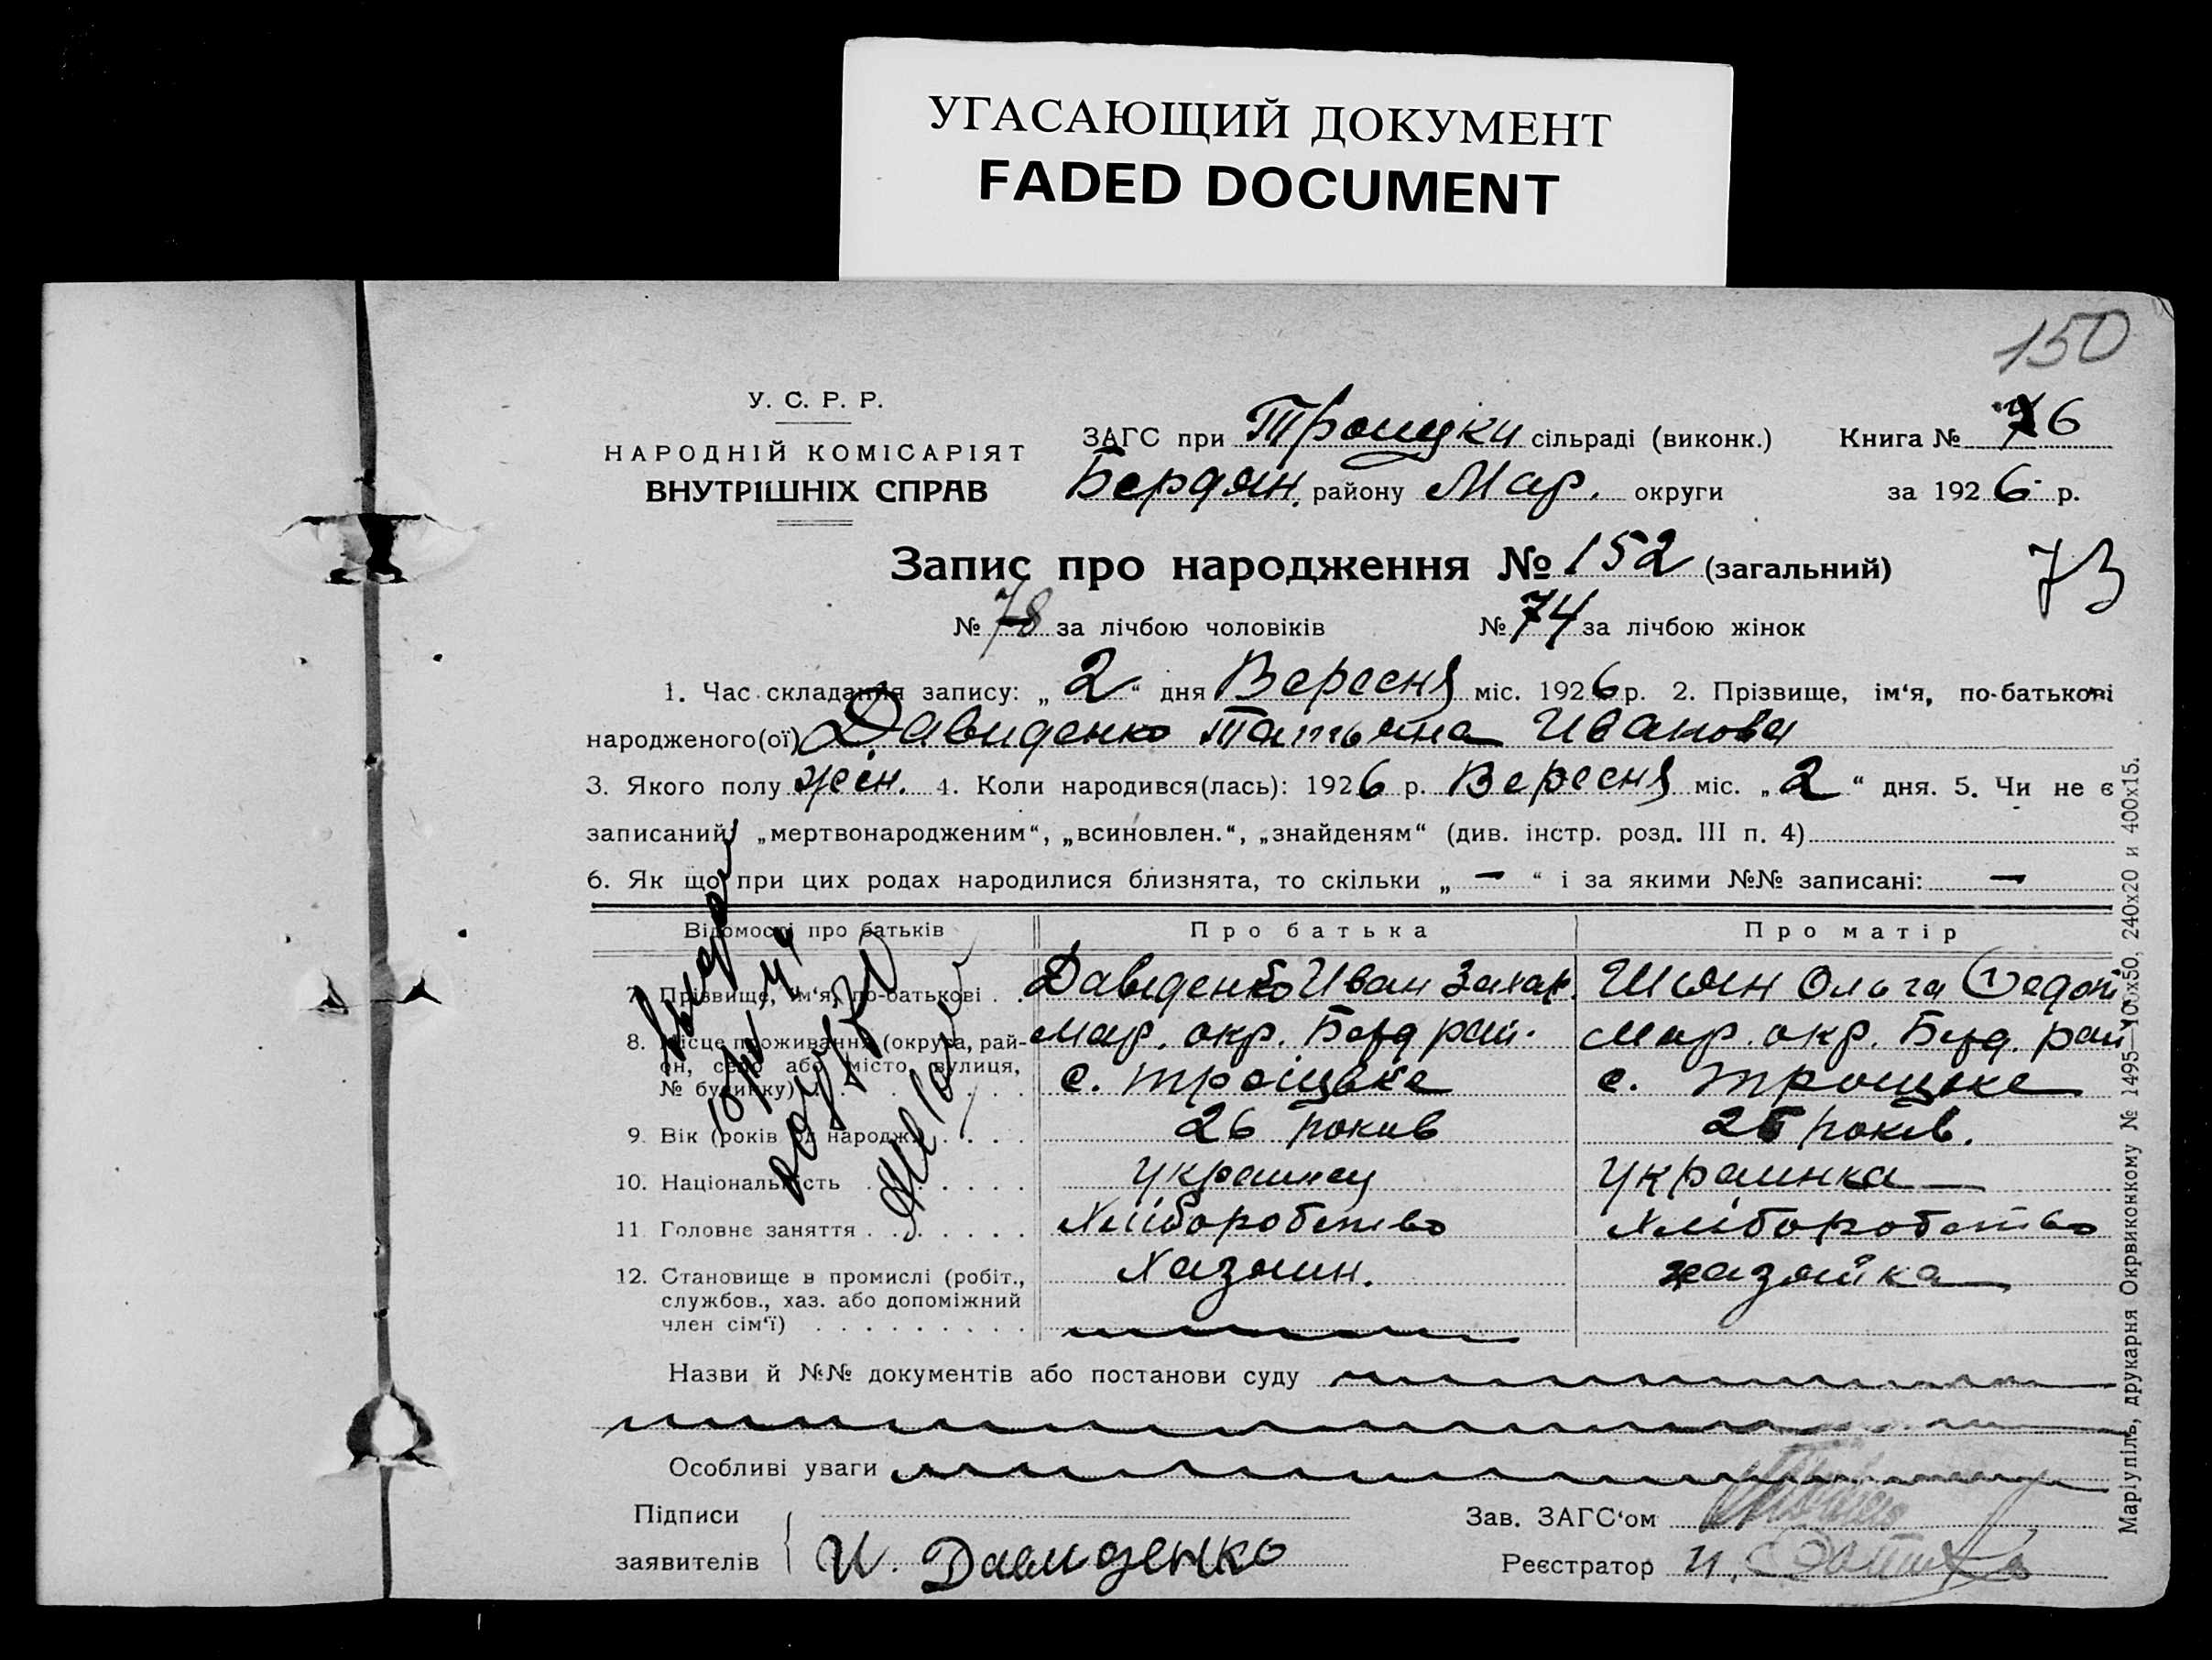 УГАСАЮЩИЙ ДОКУМЕНТ
FADED DOCUMENT
150
У. С. Р. Р.
НАРОДНІЙ КОМІСАРІЯТ
ВНУТРІШНІХ СПРАВ
ЗАГС при Троицки сільраді (виконк.) Книга № 6
Бердян. району Мар. округи за 1926 р.
Запис про народження № 152 (загальний)
73
№ 78 за лічбою чоловіків № 74 за лічбою жінок
1. Час складання запису: „ 2 “ дня Вересня міс. 1926 р. 2. Прізвище, ім‘я, по-батькові
народженого(ої) Давиденко Татьяна Иванова
3. Якого полу жін. 4. Коли народився(лась): 1926 р. Вересня міс. „ 2 “ дня. 5. Чи не є
записаний „мертвонародженим“, „всиновлен.“, „знайденям“ (див. інстр. розд. III п. 4)
6. Як що при цих родах народилися близнята, то скільки „ — “ і за якими №№ записані: —
Відомості про батьків Про батька Про матір
7. Прізвище, ім‘я, по-батькові . . Давиденко Иван Захар. Шиян Ольга Федот.
8. Місце проживання (округа, рай- Мар. окр. Берд рай. Мар. окр. Берд. рай
он, село або місто, вулиця, с. Троицьке с. Троицьке
№ будинку)
9. Вік (років од народж.) . . . . 26 роков 25 років.
10. Національність . . . . . . . Украинец Украинка
11. Головне заняття . . . . . . . Хліборобство Хліборобство
12. Становище в промислі (робіт., Хазяин. хазяйка
службов., хаз. або допоміжний
член сім‘ї) . . . . . . . . .
Назви й №№ документів або постанови суду
Особливі уваги
Підписи
заявителів И. Давиденко
Зав. ЗАГС‘ом
Реєстратор И.
Маріупіль, друкарня Окрвиконкому № 1495—100х50, 240х20 и 400х15.